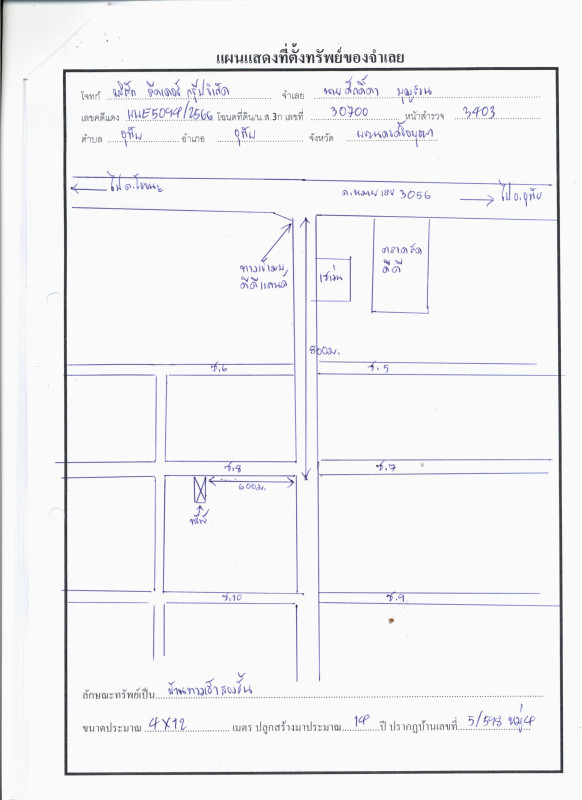 แผนแสดงที่ตั้งทรัพย์ของจำเลย
โจทก์ บริษัท กรุ๊ป จำกัด จำเลย นาย บุญ
เลขคดีแดง 5094/2566 โฉนดที่ดิน/น.ส.3ก เลขที่ 30700 หน้าสำรวจ 3403
ตำบล อุทัย อำเภอ อุทัย จังหวัด พระนครศรีอยุธยา
ไป อ.
ถ.หมายเลข 3056
ไป อ.อุทัย
ทางเข้า
ดีดีแลนด์
เซเว่น
ตลาดนัด
ดีดี
800ม.
ซ.6
ซ.5
ซ.8
ซ.7
600ม.
ซ.10
ซ.9
ลักษณะทรัพย์เป็น บ้านทาวเฮ้าสองชั้น
ขนาดประมาณ 4X12 เมตร ปลูกสร้างมาประมาณ 14 ปี ปรากฏบ้านเลขที่ 5/598 หมู่4